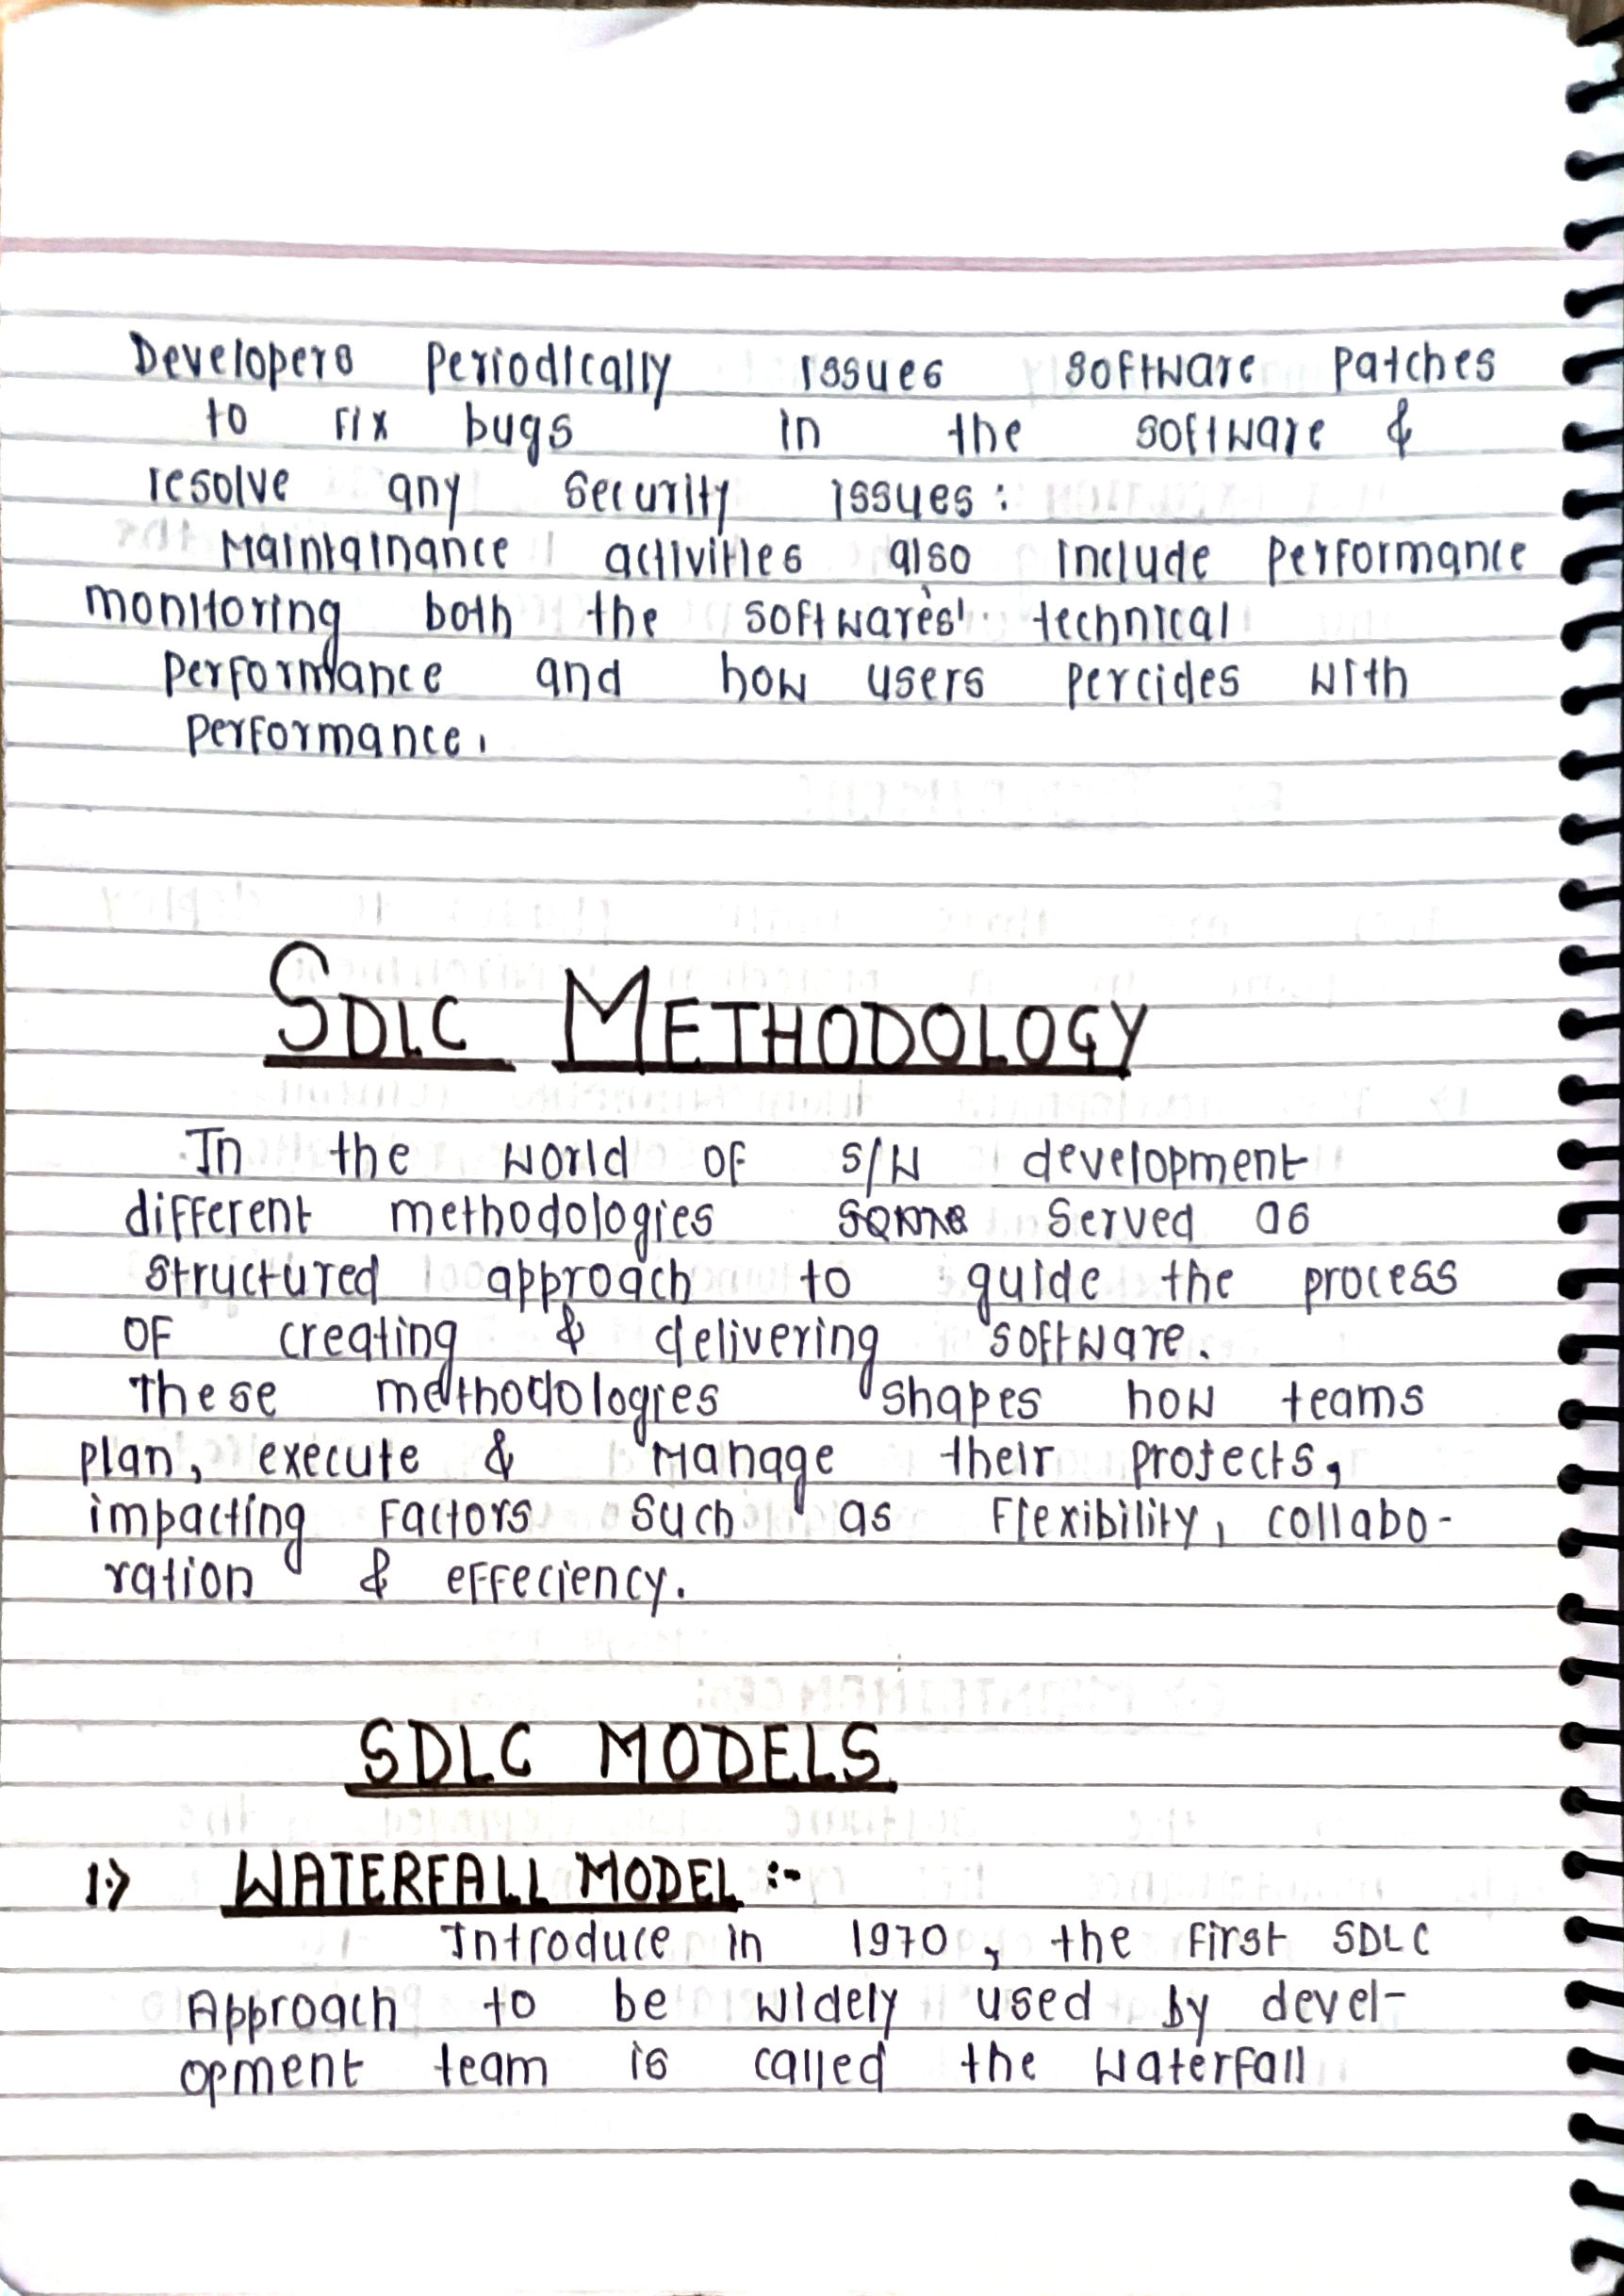 Developers Periodically issues software patches
to fix bugs in the software &
resolve any security issues:
Maintainance activities also include performance
monitoring both the softwares' technical
performance and how users percides with
performance.
SDLC METHODOLOGY
In the world of S/W development
different methodologies served as
structured approach to guide the process
of creating & delivering software.
These methodologies shapes how teams
plan, execute & manage their projects,
impacting factors such as flexibility, collabo-
ration & effeciency.
SDLC MODELS
1.) WATERFALL MODEL :-
Introduce in 1970, the first SDLC
Approach to be widely used by devel-
opment team is called the waterfall